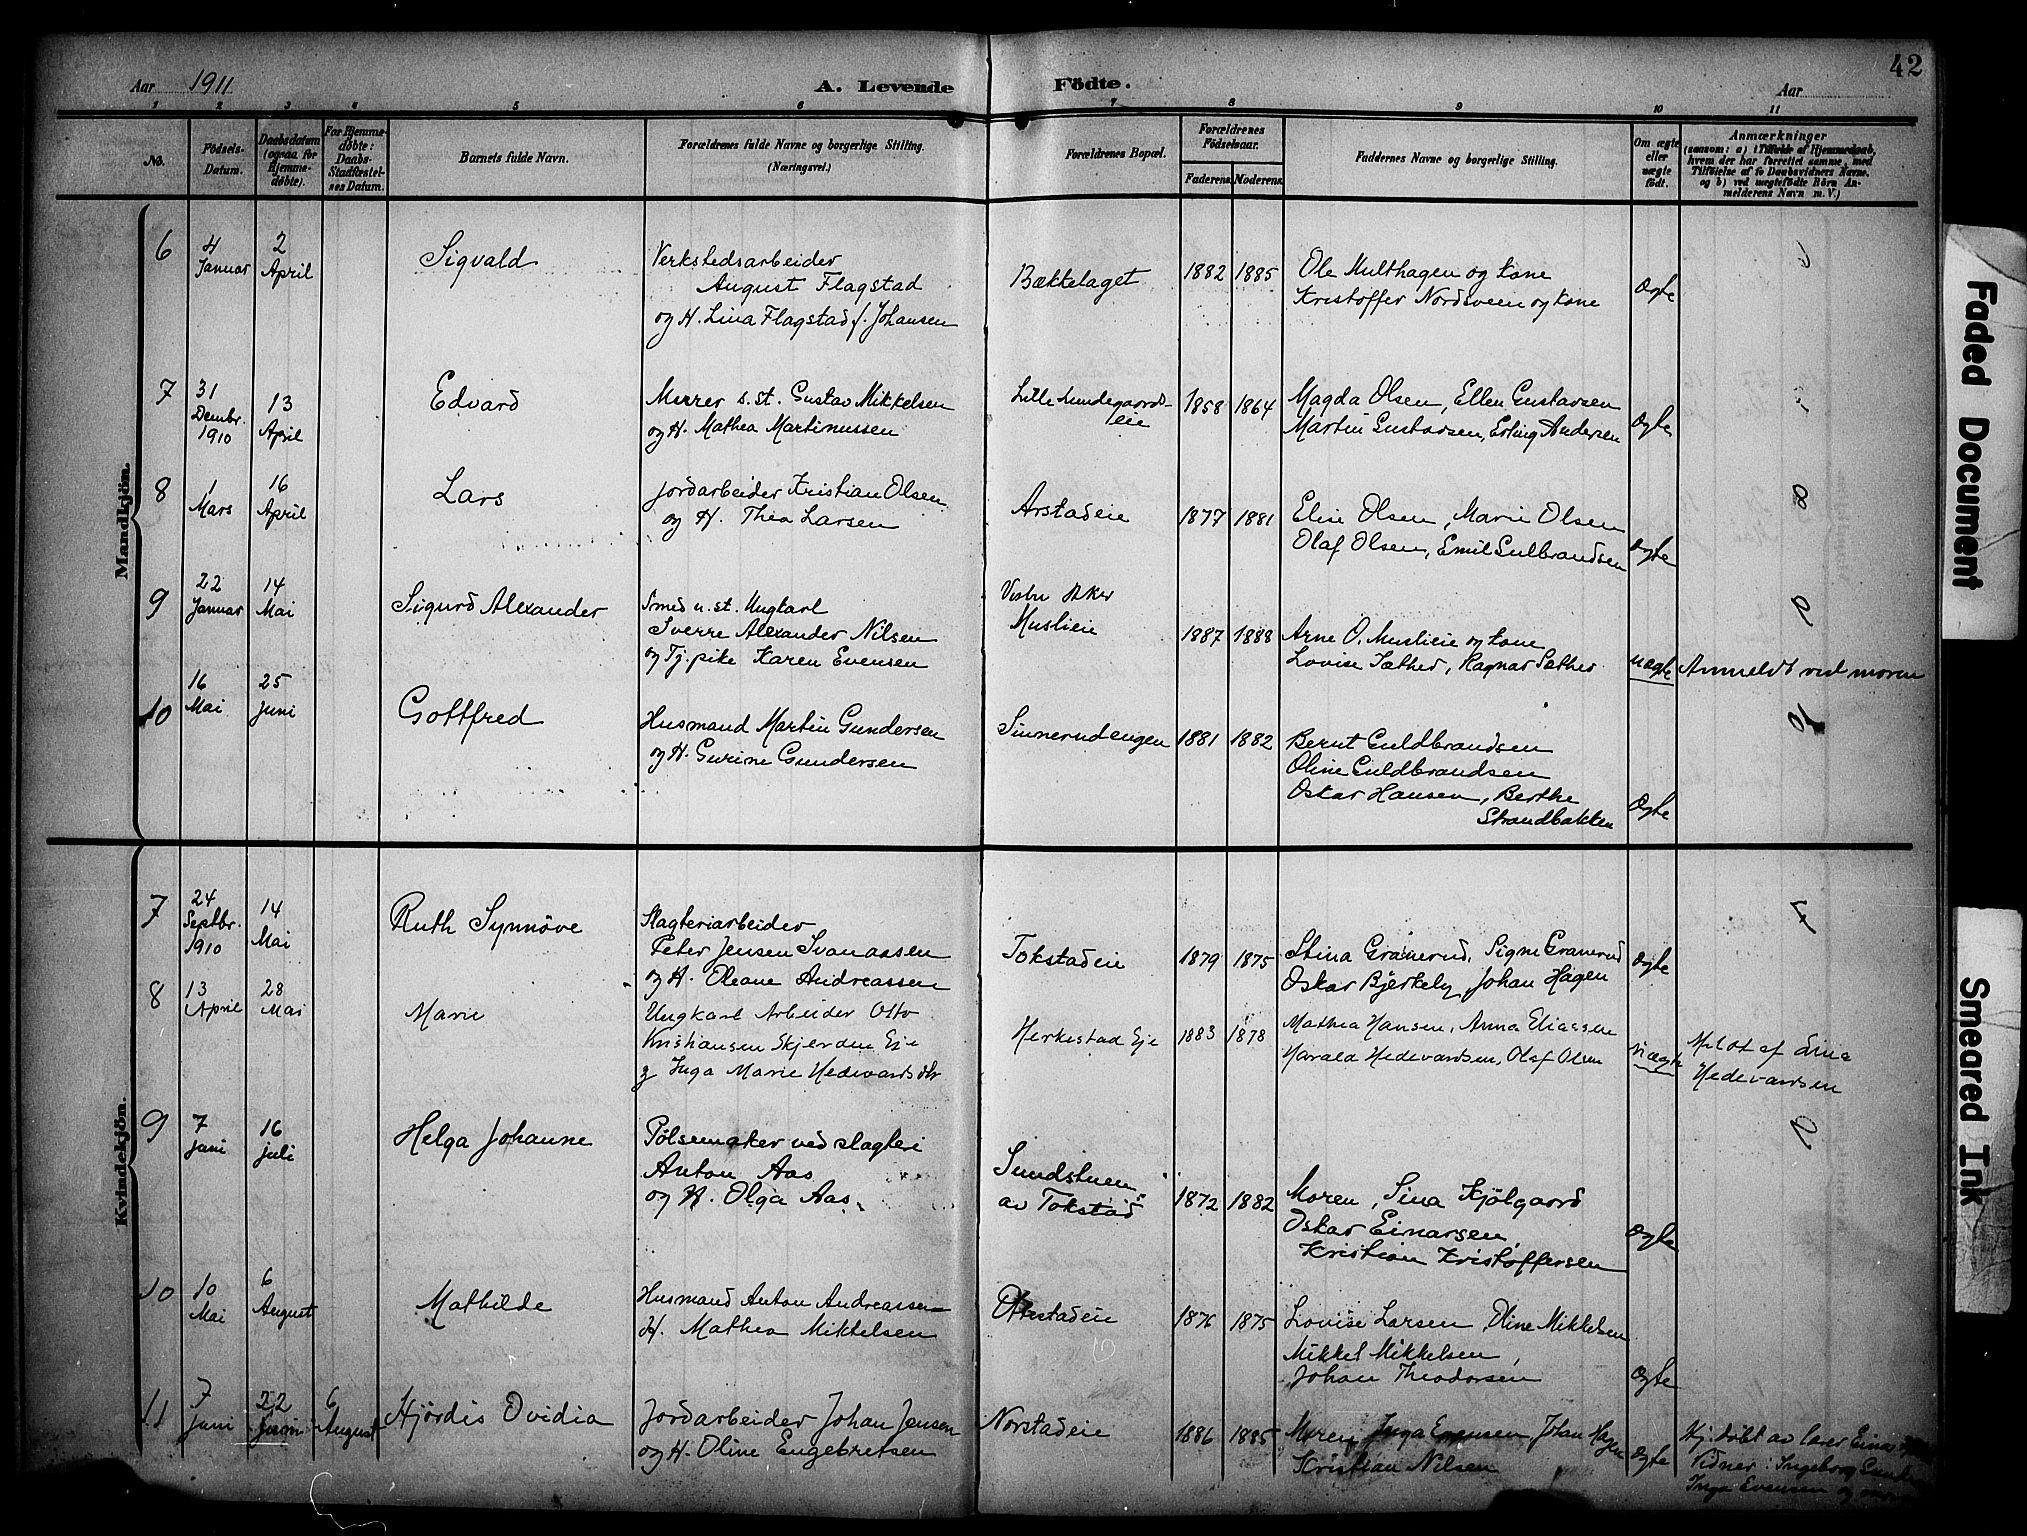 42
Aar 1911
A. Levende Födte.
Aar
1 2 3 4 5 6 7 8 9 10 11
No.
Födsels-Datum.
Daabsdatum (ogsaa for Hjemme-døbte).
For Hjemme-døbte: Daabs-Stadfæstel-ses Datum.
Barnets fulde Navn.
Forældrenes fulde Navne og borgerlige Stilling. (Næringsvei.)
Forældrenes Bopæl.
Forældrenes Födselsaar.
Faderens. Moderens.
Faddernes Navne og borgerlige Stilling.
Om ægte eller uægte födt.
Anmærkninger
(saasom: a) i Tilfælde af Hjemmedaab,
hvem der har forrettet samme, med
Tilföielse af to Daabsvidners Navne,
og b) ved uægtefödte Börn An-
melderens Navn m. V.)
Mandkjön.
6
4 Januar
2 April
Sigvald
Verkstedsarbeider
August Flagstad
og H. Lina Flagstad f. Johansen
Bækkelaget
1882 1885
Ole Multhagen og kone
Kristoffer Nordsveen og kone
Ægte
7
31 Dembr. 1910
13 April
Edvard
Murer s. st. Gustav Mikkelsen
og H. Mathea Martinussen
Lille Lundegaards-
eie
1858 1864
Magda Olsen, Ellen Gustavsen
Martin Gustavsen, Erling Andersen
Ægte
8
1 Mars
16 April
Lars
Jordarbeider Kristian Olsen
og H. Thea Larsen
Arstadeie
1877 1881
Elise Olsen, Marie Olsen
Olaf Olsen, Emil Gulbrandsen
Ægte
8
9
22 Januar
14 Mai
Sigurd Alexander
Smed u. st. Ungkarl
Sverre Alexander Nilsen
og Tj. pike Karen Evensen
Vestre Aker
Muslieie
1887 1888
Arne O. Muslieie og kone
Lovise Sæther, Ragnar Sæther
uægte
Anmeldt ved moren
10
16 Mai
25 Juni
Gottfred
Husmand Martin Gundersen
og H. Gurine Gundersen
Sinnerudengen
1881 1882
Bernt Guldbrandsen
Oline Guldbrandsen
Oskar Hansen, Berthe
Strandbakken
Ægte
Kvindekjön.
7
24 Septbr. 1910
14 Mai
Ruth Synnöve
Slagteriarbeider
Peter Jensen Svenaasen
og H. Oleane Andreassen
Tokstadeie
1879 1875
Stina Granerud, Signe Granerud
Oskar Bjerkely, Johan Hagen
Ægte
8
13 April
28 Mai
Marie
Ungkarl Arbeider Otto
Kristiansen Skjerden Eje
g Inga Marie Hedevardsdtr
Herkestad Eje
1883 1878
Mathea Hansen, Anna Eliassen
Harald Hedevardsen, Olaf Olsen
Uægte
Meldt af Lina
Hedevardsen
9
7 Juni
16 Juli
Helga Johanne
Pølsemaker ved slagteri
Anton Aas
og H. Olga Aas.
Sundstuen
av Tokstad
1872 1882
Moren, Lina Kjölgaard
Oskar Einarsen,
Kristian Kristoffersen
Ægte
10
10 Mai
6 August
Mathilde
Husmand Anton Andreassen
H. Mathea Mikkelsen
Ottestadeie
1876 1875
Lovise Larsen, Oline Mikkelsen
Mikkel Mikkelsen,
Johan Theodorsen
Ægte
11
7 Juni
22 Juni
6 August
Hjördis Ovidia
Jordarbeider Johan Jensen
og H. Oline Engebretsen
Norstadeie
1886 1885
Moren, Inga Evensen, Johan Hagen
Kristian Nilsen
Ægte
Hj. döbt av lærer Einar
Vidner: Ingeborg
Inga Evensen og
Faded Document
Smeared Ink